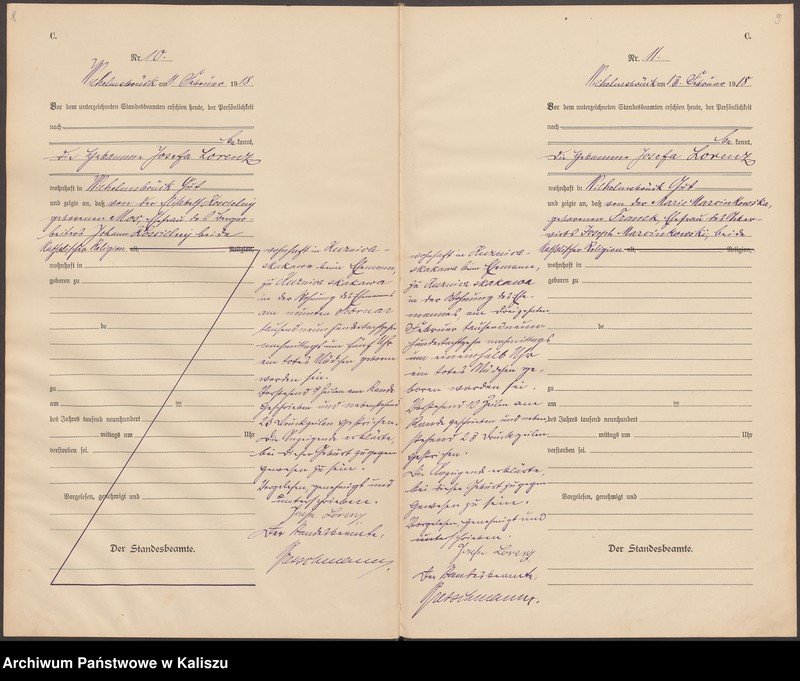 8
C.
Nr. 10.
Wilhelmsbrück am 11. Februar 1918.
Vor dem unterzeichneten Standesbeamten erschien heute, der Persönlichkeit
nach
be kannt,
die Hebamme Josefa Lorenz
wohnhaft in Wilhelmsbrück Gut
und zeigte an, daß von der Koscielny
geborenen Ehefrau des
Johann Koscielny beide
katholischer Religion alt, Religion,
wohnhaft in
geboren zu
de
zu
am ten
des Jahres tausend neunhundert
mittags um Uhr
verstorben sei.
Vorgelesen, genehmigt und
Der Standesbeamte.
wohnhaft in Kuznica-
skakawa beim Ehemann,
zu Kuznica skakawa
in der Wohnung des Ehemannes
am neunten Februar
tausendneunhundertachtzehn
nachmittags um fünf Uhr
ein totes Mädchen geboren
worden sei.
Vorstehend 9 Zeilen am Rande
geschrieben und nebenstehend
23 Druckzeilen gestrichen.
Die Anzeigende erklärte,
bei dieser Geburt zugegen
gewesen zu sein.
Vorgelesen, genehmigt und
unterschrieben.
Josefa Lorenz
Der Standesbeamte,
9
C.
Nr. 11.
Wilhelmsbrück am 13. Februar 1918.
Vor dem unterzeichneten Standesbeamten erschien heute, der Persönlichkeit
nach
be kannt,
die Hebamme Josefa Lorenz
wohnhaft in Wilhelmsbrück Gut
und zeigte an, daß von der Marie Marcinkowska,
geborenen Franek, Ehefrau des
Joseph Marcinkowski, beide
katholischer Religion alt, Religion,
wohnhaft in
geboren zu
de
zu
am ten
des Jahres tausend neunhundert
mittags um Uhr
verstorben sei.
Vorgelesen, genehmigt und
Der Standesbeamte.
wohnhaft in Kuznica-
skakawa beim Ehemanne,
zu Kuznica skakawa
in der Wohnung des Ehe-
mannes, am dreizehnten
Februar tausendneun-
hundertachtzehn nachmittags
um eineinhalb Uhr
ein totes Mädchen ge-
boren worden sei.
Vorstehend 10 Zeilen am
Rande geschrieben und neben-
stehend 23 Druckzeilen
gestrichen.
Die Anzeigende erklärte
bei dieser Geburt zugegen
gewesen zu sein.
Vorgelesen, genehmigt und
unterschrieben.
Josefa Lorenz
Der Standesbeamte,
Archiwum Państwowe w Kaliszu